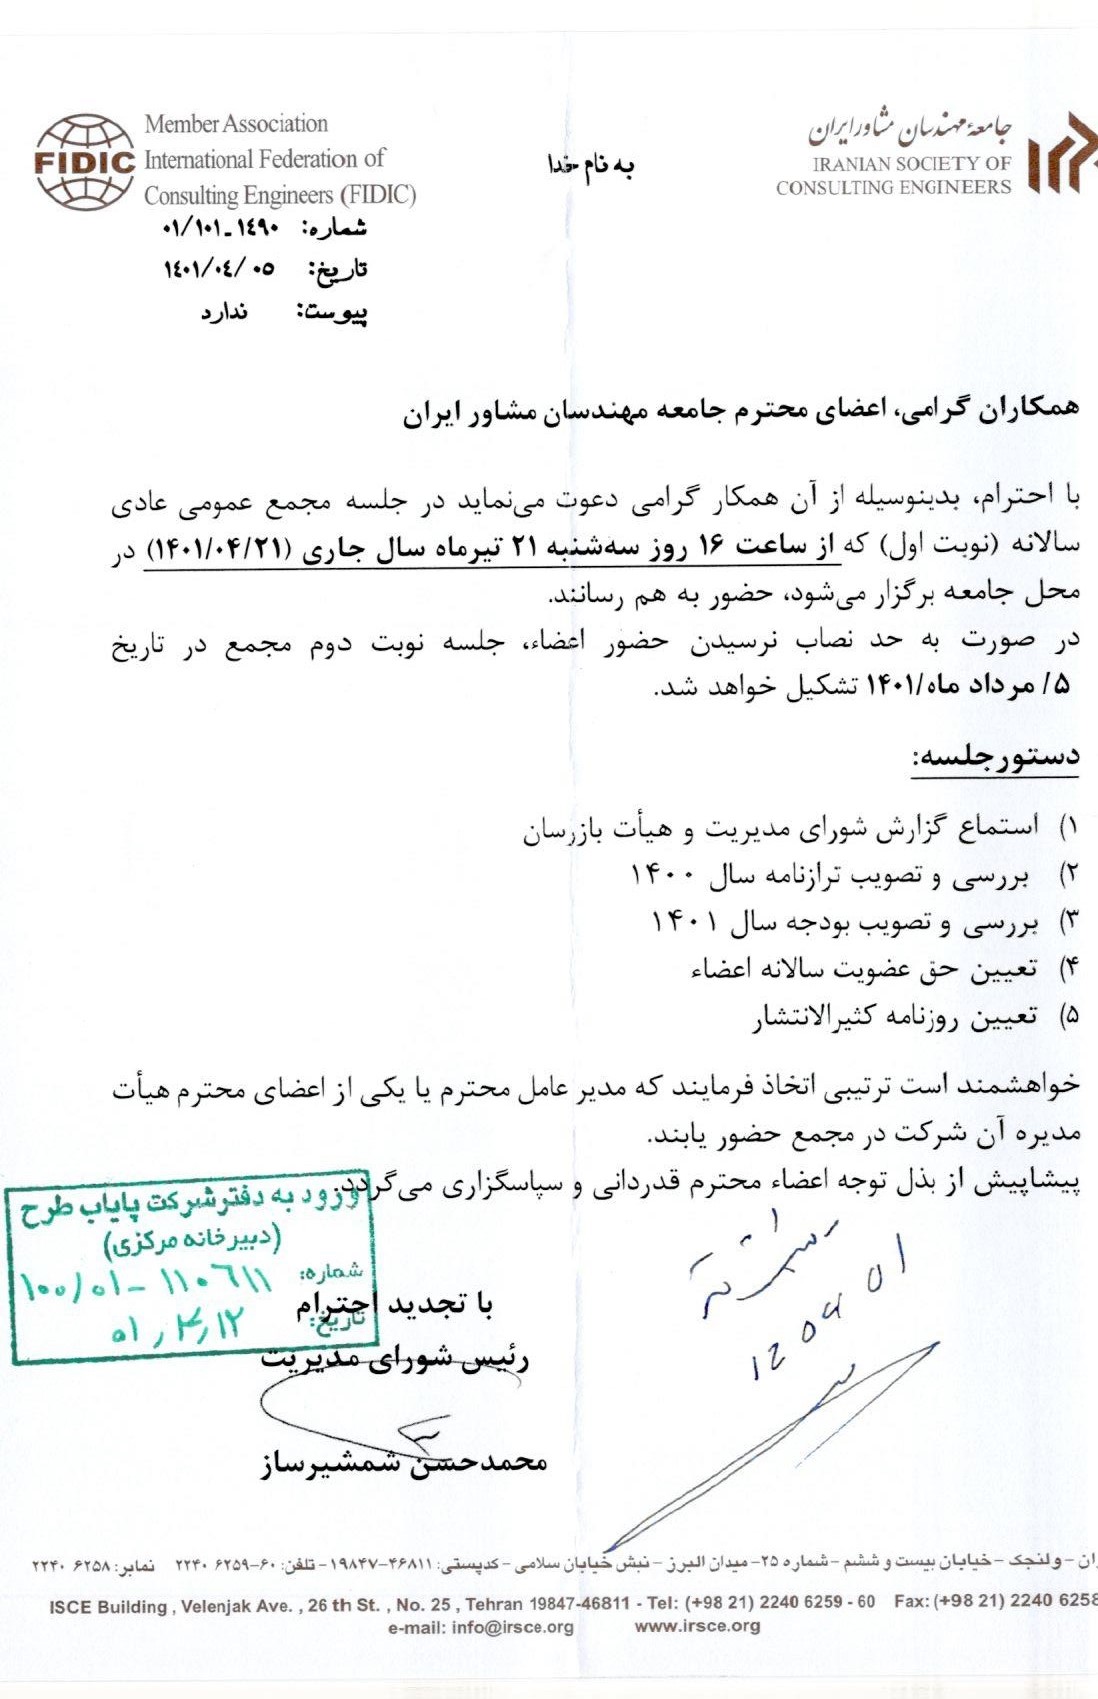 جامعهٔ مهندسان مشاور ایران
IRANIAN SOCIETY OF
CONSULTING ENGINEERS
به نام خدا
FIDIC
Member Association
International Federation of
Consulting Engineers (FIDIC)
شماره: ۰۱/۱۰۱-۱٤۹۰
تاریخ: ۱٤۰۱/۰٤/۰۵
پیوست: ندارد
همکاران گرامی، اعضای محترم جامعه مهندسان مشاور ایران
با احترام، بدینوسیله از آن همکار گرامی دعوت می‌نماید در جلسه مجمع عمومی عادی
سالانه (نوبت اول) که از ساعت ۱۶ روز سه‌شنبه ۲۱ تیرماه سال جاری (۱۴۰۱/۰۴/۲۱) در
محل جامعه برگزار می‌شود، حضور به هم رسانند.
در صورت به حد نصاب نرسیدن حضور اعضاء، جلسه نوبت دوم مجمع در تاریخ
۵/ مرداد ماه/۱۴۰۱ تشکیل خواهد شد.
دستورجلسه:
۱) استماع گزارش شورای مدیریت و هیأت بازرسان
۲) بررسی و تصویب ترازنامه سال ۱۴۰۰
۳) بررسی و تصویب بودجه سال ۱۴۰۱
۴) تعیین حق عضویت سالانه اعضاء
۵) تعیین روزنامه کثیرالانتشار
خواهشمند است ترتیبی اتخاذ فرمایند که مدیر عامل محترم یا یکی از اعضای محترم هیأت
مدیره آن شرکت در مجمع حضور یابند.
پیشاپیش از بذل توجه اعضاء محترم قدردانی و سپاسگزاری می‌گردد.
ورود به دفتر شرکت پایاب طرح
(دبیرخانه مرکزی)
شماره: ۱۰۰/۰۱-۱۱۰۶۱۱
تاریخ: ۰۱,۴,۱۲
با تجدید احترام
رئیس شورای مدیریت
محمدحسن شمشیرساز
ران -ولنجک -خیابان بیست و ششم -شماره ۲۵- میدان البرز - نبش خیابان سلامی -کدپستی: ۴۶۸۱۱-۱۹۸۴۷- تلفن: ۶۰-۶۲۵۹ ۲۲۴۰ نمابر: ۶۲۵۸ ۲۲۴۰
ISCE Building , Velenjak Ave. , 26 th St. , No. 25 , Tehran 19847-46811 - Tel: (+98 21) 2240 6259 - 60 Fax: (+98 21) 2240 6258
e-mail: info@irsce.org www.irsce.org